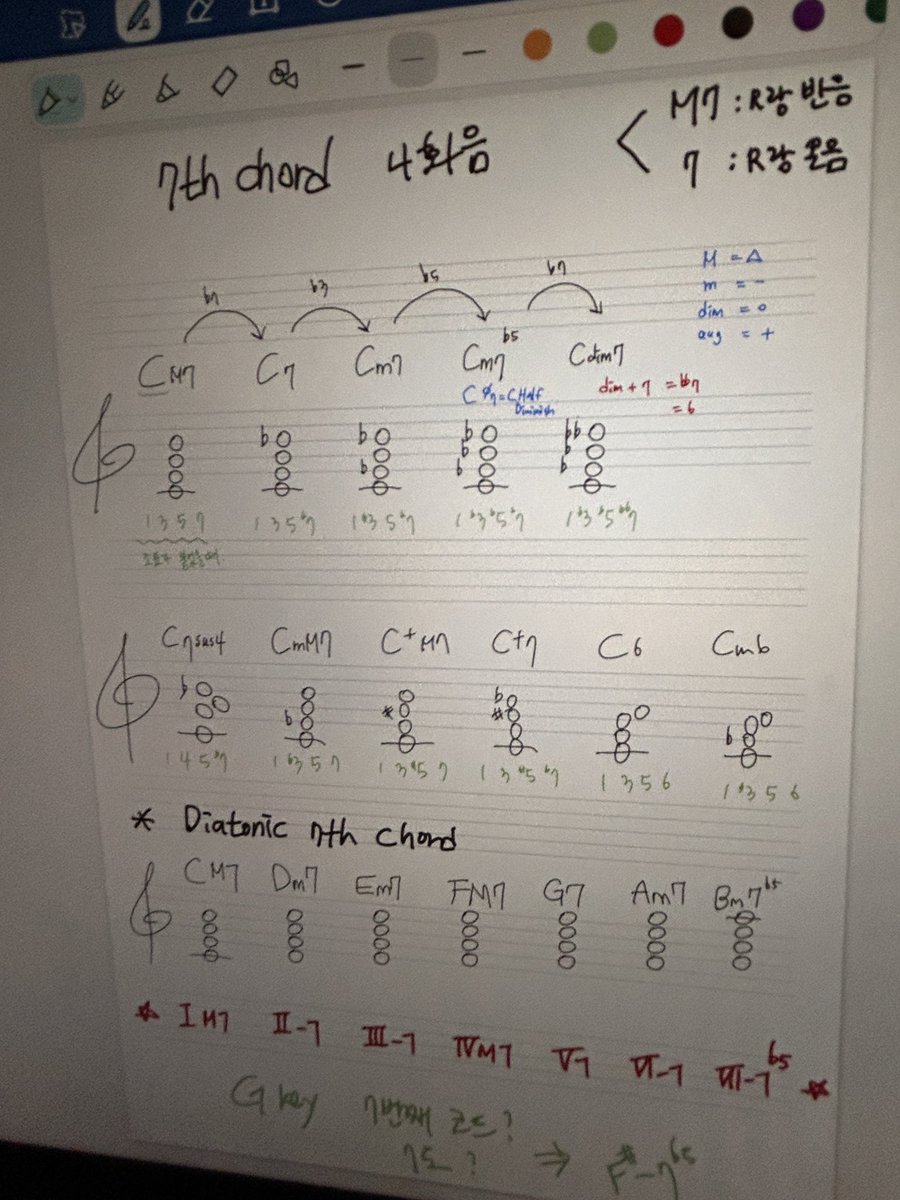 7th chord 4화음
M7 : R랑 반음
7 : R랑 온음
b7 b3 b5 b7
M = △
m = -
dim = o
aug = +
CM7 C7 Cm7 Cm7b5 Cdim7
CØ7 = C Half Diminish
dim + 7 = bb7
= 6
b b b b b b bb b b
1 3 5 7 1 3 5 b7 1 b3 5 b7 1 b3 b5 b7 1 b3 b5 bb7
C7sus4 CmM7 C+M7 C+7 C6 Cm6
b b # b # b
1 4 5 b7 1 b3 5 7 1 3 #5 7 1 3 #5 b7 1 3 5 6 1 b3 5 6
* Diatonic 7th Chord
CM7 Dm7 Em7 FM7 G7 Am7 Bm7b5
★ IM7 II-7 III-7 IVM7 V7 VI-7 VII-7b5 ★
G key 7번째 코드?
7도? ⇒ F#-7b5